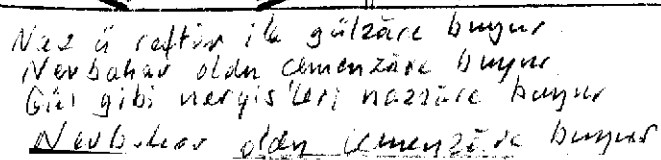 Naz ü reftâr ile gülzâre buyur
Nevbahar oldu çemenzâre buyur
Gül gibi nergis'leri nazzâre buyur
Nevbahar oldu çemenzâre buyur